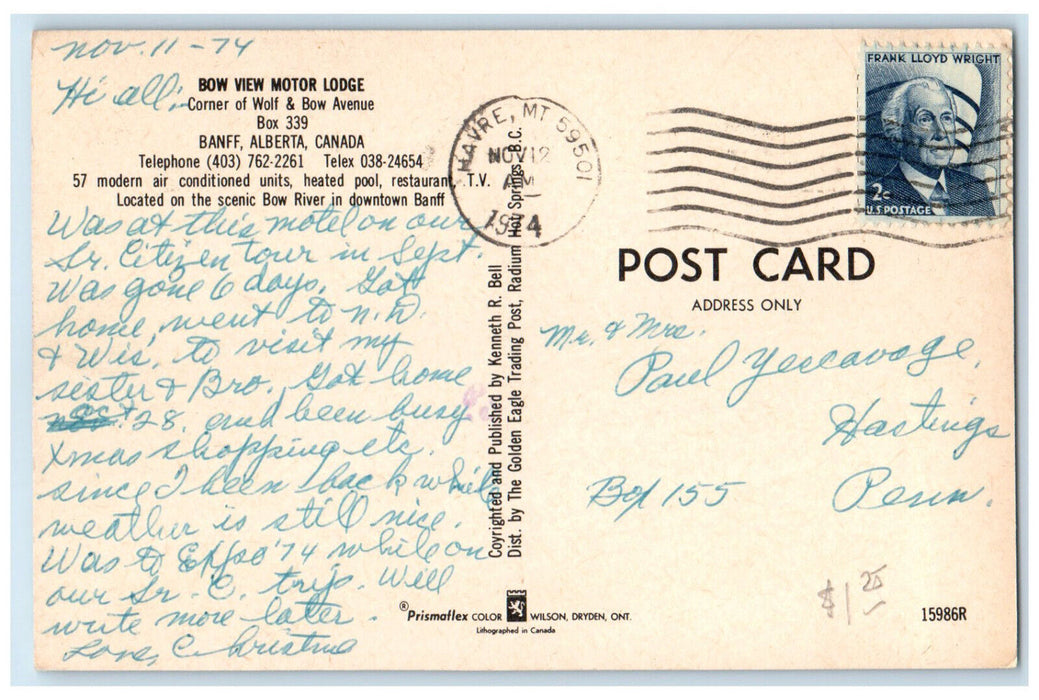 Nov. 11 - 74
Hi all;
BOW VIEW MOTOR LODGE
Corner of Wolf & Bow Avenue
Box 339
BANFF, ALBERTA, CANADA
Telephone (403) 762-2261 Telex 038-24654
57 modern air conditioned units, heated pool, restaurant, T.V.
Located on the scenic Bow River in downtown Banff
Was at this motel on our
Sr. Citizen tour in Sept.
Was gone 6 days. Got
home, went to N.D.
& Wis. to visit my
sister & Bro. Got home
Oct 28. and been busy
Xmas shopping etc.
since I been back while
weather is still nice.
Was to Expo '74 while on
our Sr. C. trip. Will
write more later.
Love, Christine
Coyrighted and Published by Kenneth R. Bell
Dist. by The Golden Eagle Trading Post, Radium Hot Springs, B.C.
HAVRE, MT 59501
NOV 12
AM
1974
FRANK LLOYD WRIGHT
2c
U.S. POSTAGE
POST CARD
ADDRESS ONLY
Mr. & Mrs.
Paul Yescavage,
Hastings
Box 155 Penn.
$1 25
®Prismaflex COLOR WILSON, DRYDEN, ONT.
Lithographed in Canada
15986R